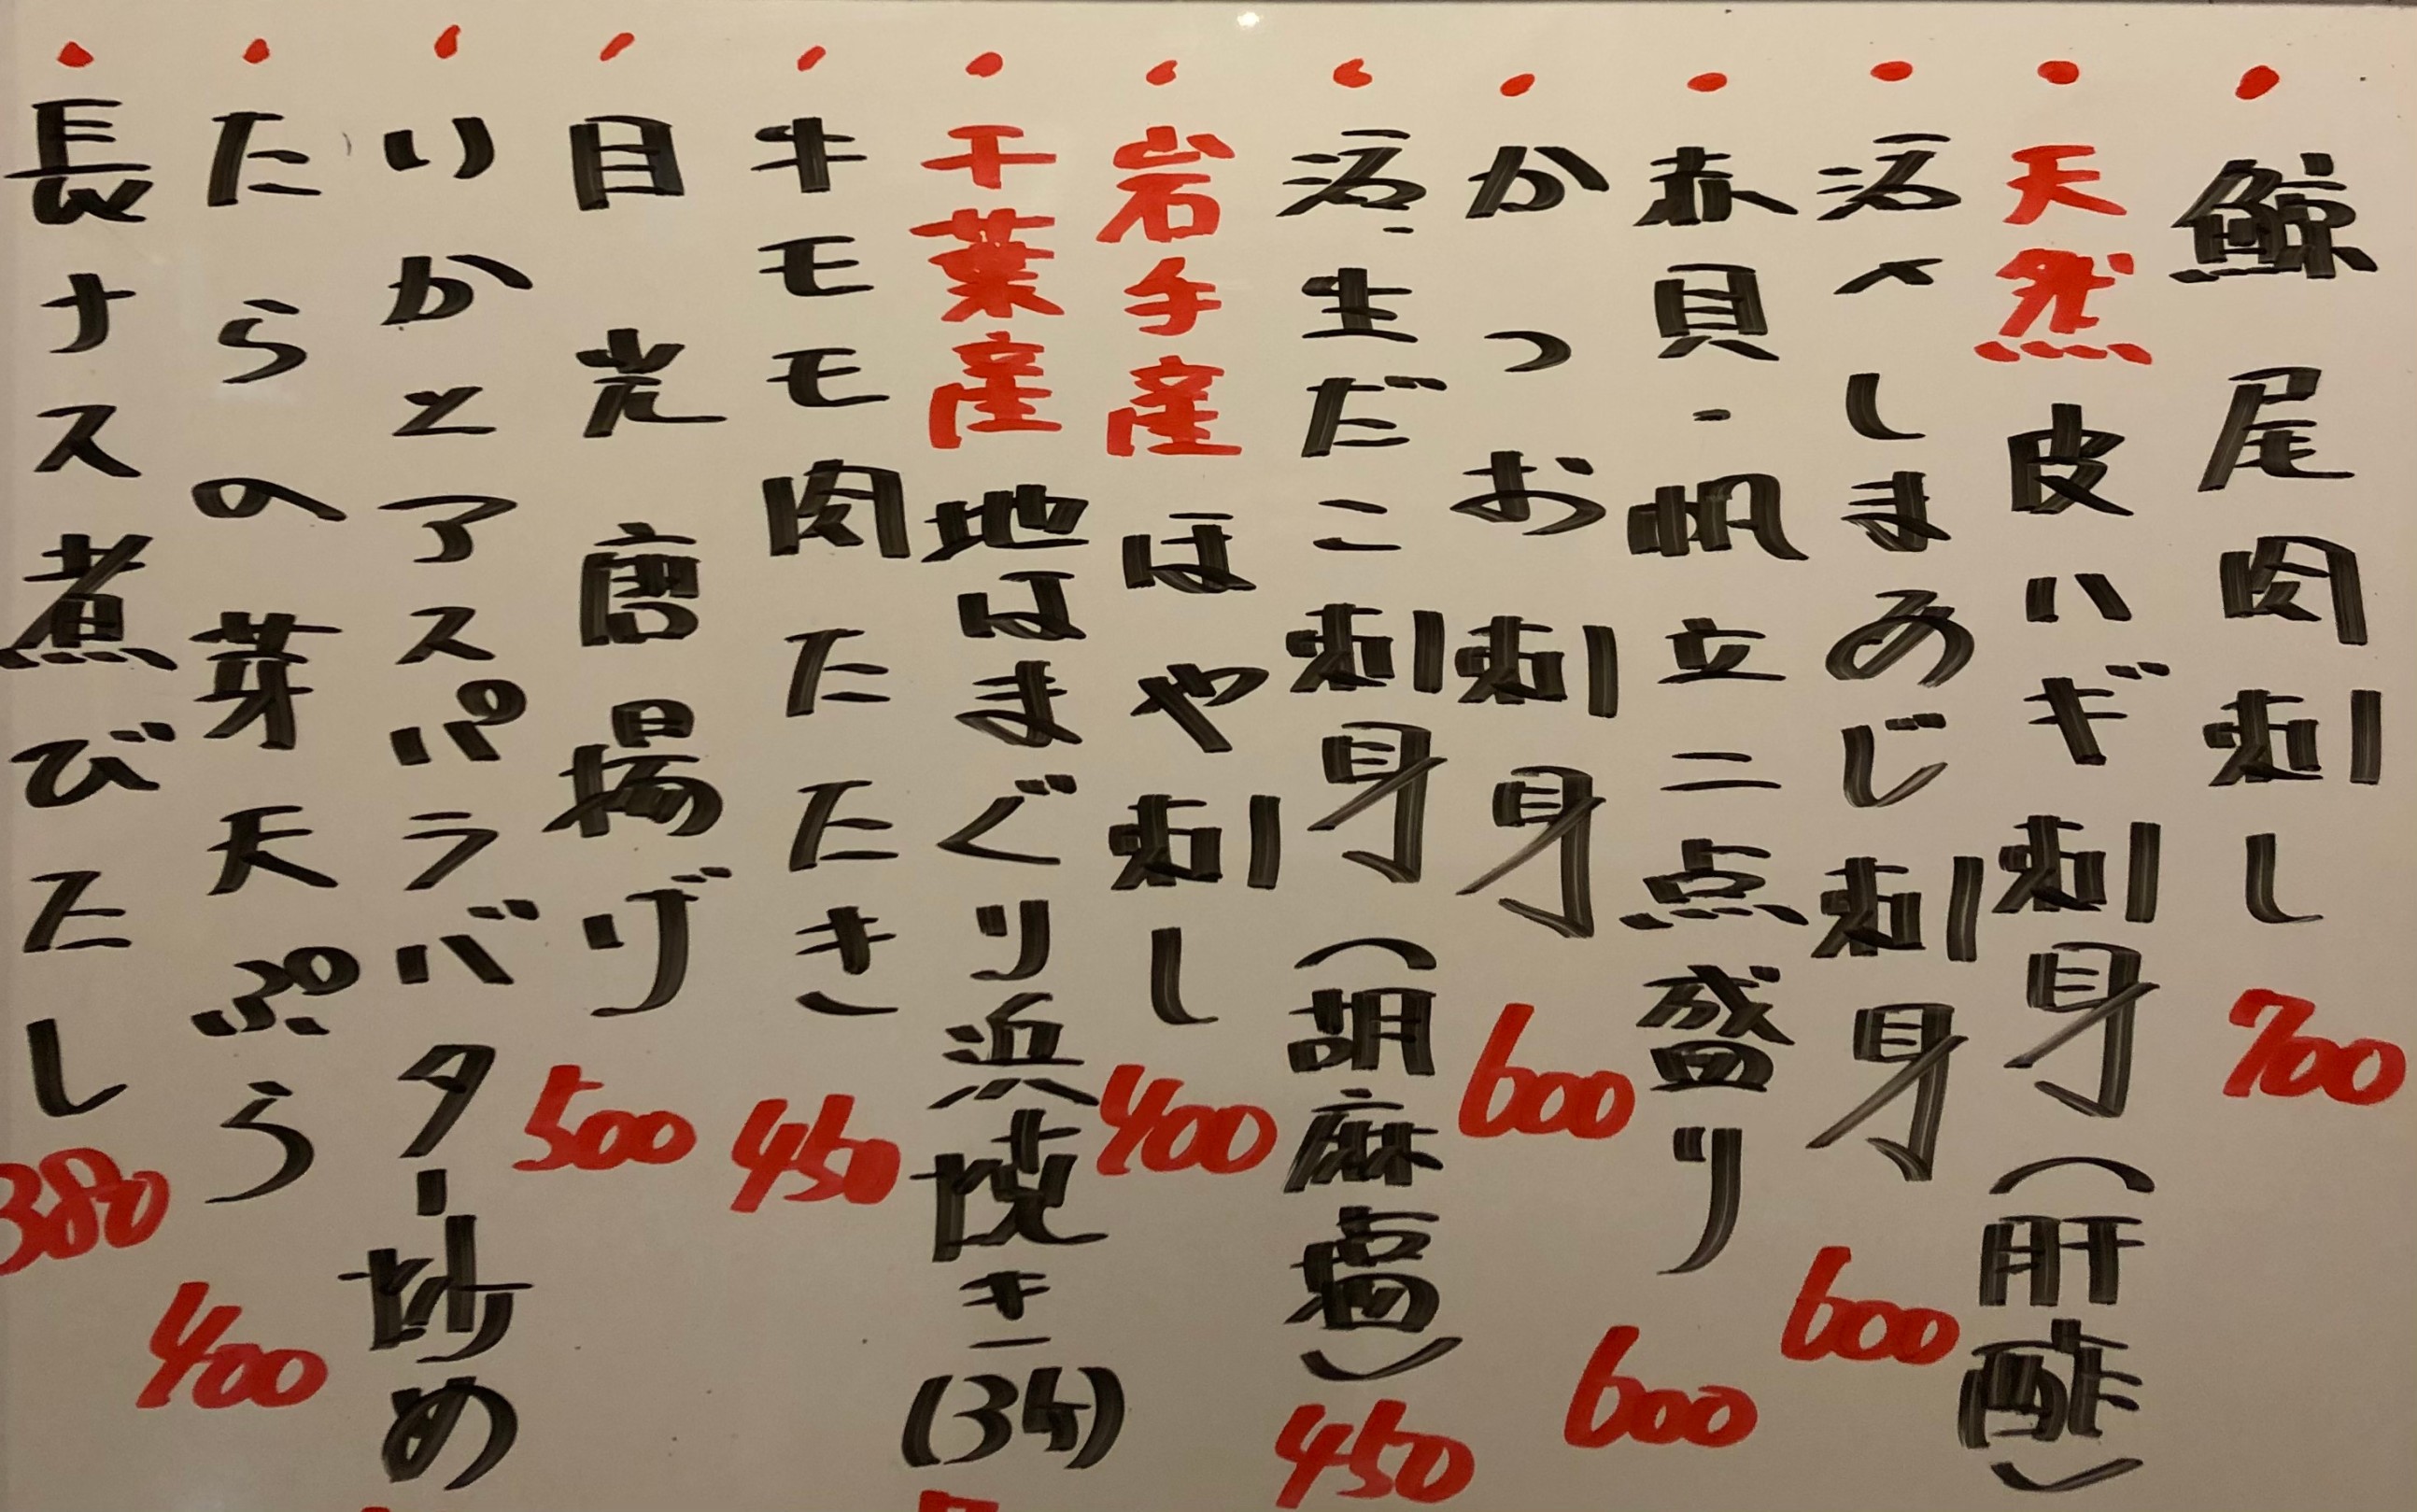 ・鯨尾肉刺し 700
・天然皮ハギ刺身(肝酢)
・活〆しまあじ刺身 600
・赤貝・帆立二点盛り 600
・かつお刺身 600
・活・生だこ刺身(胡麻塩) 450
・岩手産ほや刺し 400
・千葉産地はまぐり浜焼き(3ケ)
・牛モモ肉たたき 450
・目光唐揚げ 500
・いかとアスパラバター炒め
・たらの芽天ぷら 400
・長ナス煮びたし 380